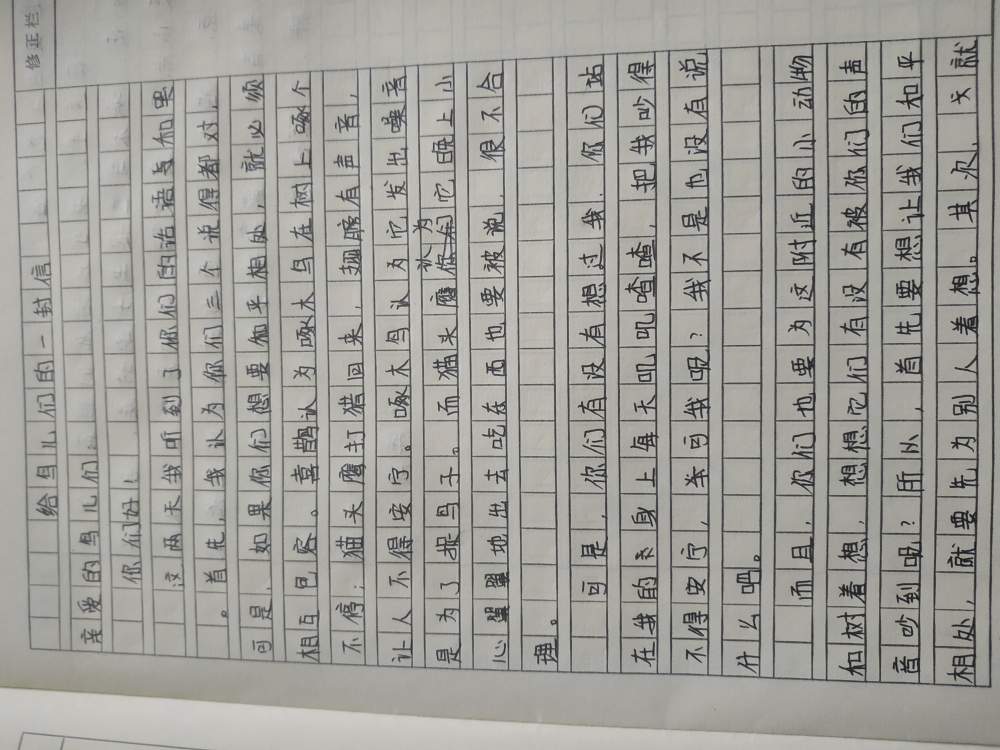 修正栏
给鸟儿们的一封信
亲爱的鸟儿们：
你们好！
这两天我听到了你们的话语与和果
。首先，我认为你们三个说得都对，
可是，如果你们想要和平相处，就必须
相互包容。喜鹊认为啄木鸟在树上啄个
不停；猫头鹰打猎回来，翅膀有声音，
让人不得安宁。啄木鸟认为它发出噪音
是为了捉鸟子。而猫头鹰认为它晚上小
心翼翼地出去吃东西也要被说，很不合
理。
可是，你们有没有想过我，你们站
在我的身上每天叽叽喳喳，把我吵得
不得安宁，牵可我呢？我不是也没有说
什么吧。
而且，你们也要为这附近的小动物
和树着想，想想它们有没有被你们的声
音吵到呢？所以，首先要想让我们和平
相处，就要先为别人着想。其次，就